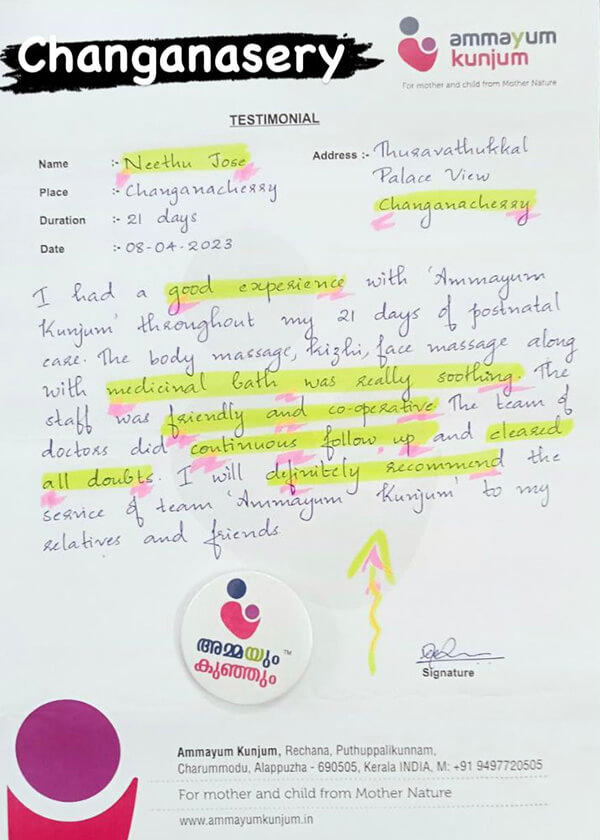 Changanasery
ammayum
kunjum
For mother and child from Mother Nature
TESTIMONIAL
Name :- Neethu Jose
Place :- Changanacherry
Duration :- 21 days
Date :- 08-04-2023
Address :- Thuravathukkal
Palace View
Changanacherry
I had a good experience with 'Ammayum
Kunjum' throughout my 21 days of postnatal
care. The body massage, kizhi, face massage along
with medicinal bath was really soothing. The
staff was friendly and co-operative. The team of
doctors did continuous follow up and cleared
all doubts. I will definitely recommend the
service of team 'Ammayum Kunjum' to my
relatives and friends
അമ്മയും TM
കുഞ്ഞും
Signature
Ammayum Kunjum, Rechana, Puthuppalikunnam,
Charummodu, Alappuzha - 690505, Kerala INDIA, M: +91 9497720505
For mother and child from Mother Nature
www.ammayumkunjum.in